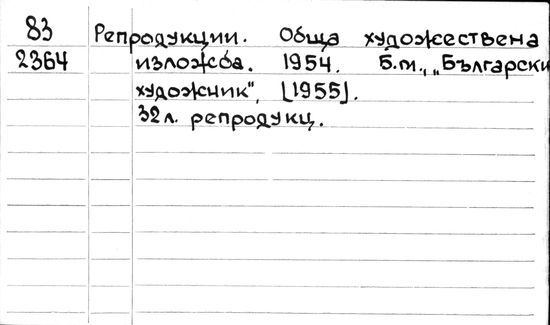 83 Репродукции. Обща художествена
2364 изложба. 1954. Б.м., „Български
художник", [1955].
32 л. репродукц.